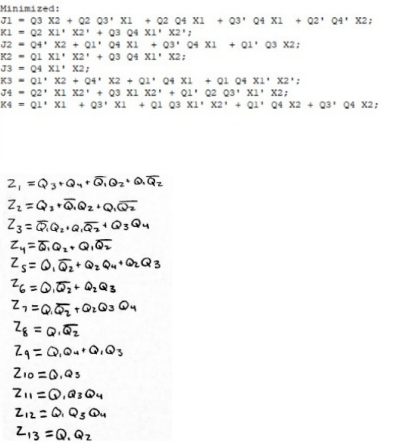 Minimized:
J1 = Q3 X2 + Q2 Q3' X1 + Q2 Q4 X1 + Q3' Q4 X1 + Q2' Q4' X2;
K1 = Q2 X1' X2' + Q3 Q4 X1' X2';
J2 = Q4' X2 + Q1' Q4 X1 + Q3' Q4 X1 + Q1' Q3 X2;
K2 = Q1 X1' X2' + Q3 Q4 X1' X2';
J3 = Q4 X1' X2;
K3 = Q1' X2 + Q4' X2 + Q1' Q4 X1 + Q1 Q4 X1' X2';
J4 = Q2' X1 X2' + Q3 X1 X2' + Q1' Q2 Q3' X1' X2;
K4 = Q1' X1 + Q3' X1 + Q1 Q3 X1' X2' + Q1' Q4 X2 + Q3' Q4 X2;
Z1 = Q3+Q4+Q̅1Q2+Q1Q̅2
Z2 = Q3+Q̅1Q2+Q1Q̅2
Z3 = Q̅1Q2+Q1Q̅2+Q3Q4
Z4 = Q̅1Q2+Q1Q̅2
Z5 = Q1Q̅2+Q2Q4+Q2Q3
Z6 = Q1Q̅2+Q2Q3
Z7 = Q1Q̅2+Q2Q3Q4
Z8 = Q1Q̅2
Z9 = Q1Q4+Q1Q3
Z10 = Q1Q3
Z11 = Q1Q3Q4
Z12 = Q1Q3Q4
Z13 = Q1Q2